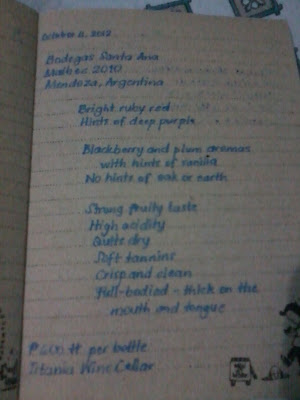 October 11, 2012
Bodegas Santa Ana
Malbec 2010
Mendoza, Argentina
Bright ruby red
Hints of deep purple
Blackberry and plum aromas
with hints of vanilla
No hints of oak or earth
Strong fruity taste
High acidity
Quite dry
Soft tannins
Crisp and clean
Full-bodied - thick on the
mouth and tongue
₱600 ++ per bottle
Titania Wine Cellar